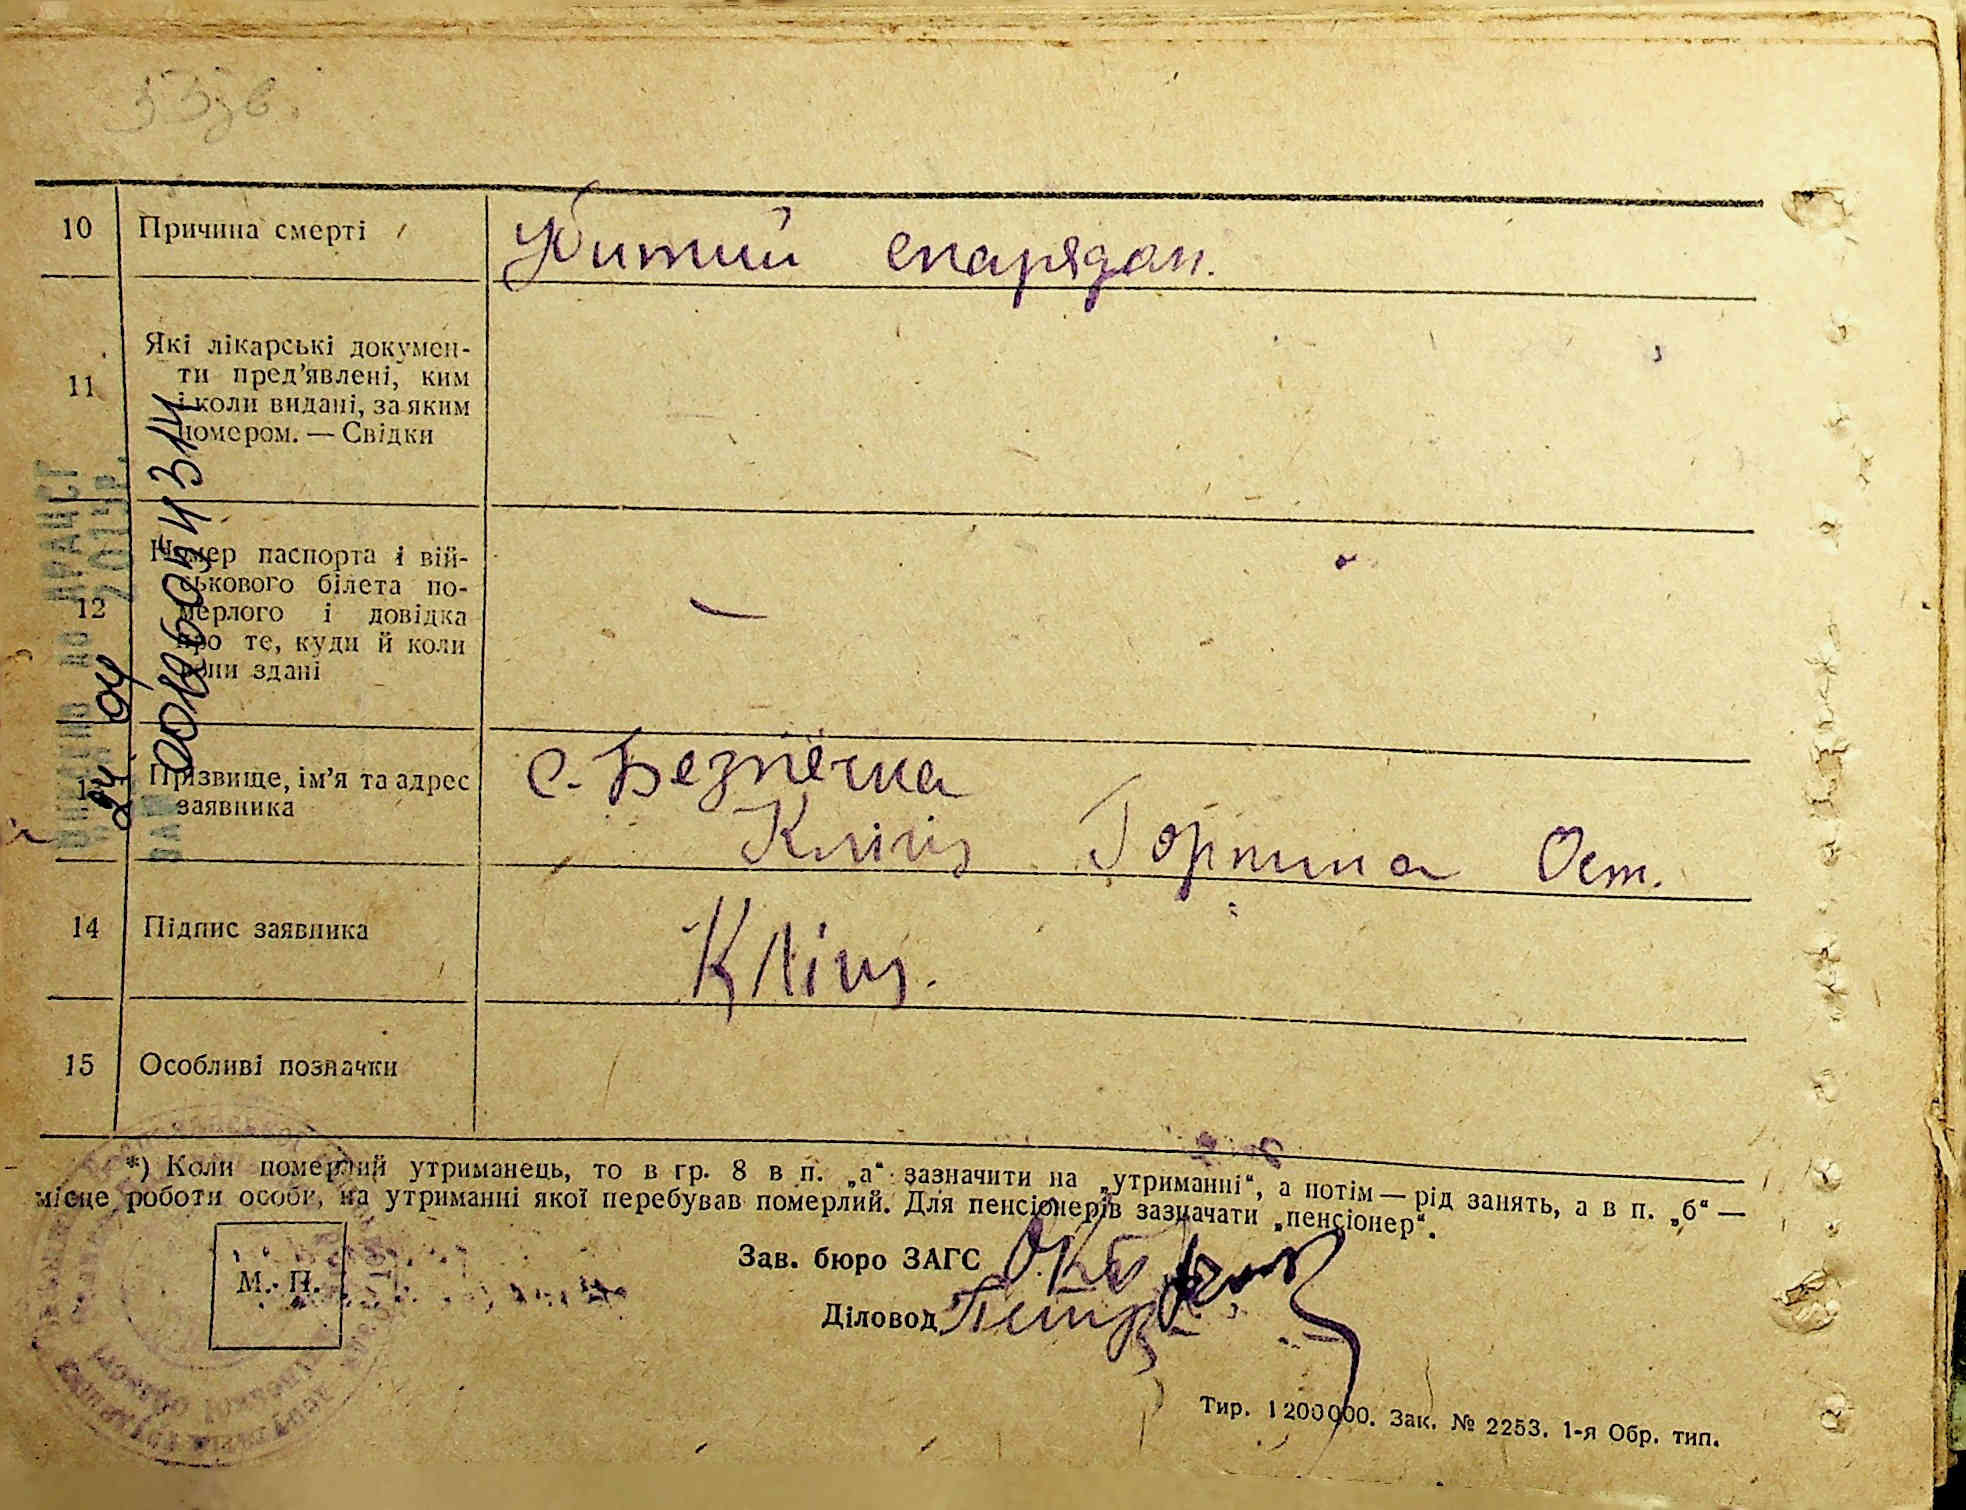 10 Причина смерті Убитий снарядом.
11 Які лікарські докумен-
ти пред'явлені, ким
і коли видані, за яким
номером. — Свідки
12 Номер паспорта і вій-
ськового білета по-
мерлого і довідка
про те, куди й коли
вони здані —
13 Прізвище, ім'я та адрес
заявника
с. Безпечна
Кліщ Горпина Ост.
14 Підпис заявника Кліщ.
15 Особливі позначки
*) Коли померлий утриманець, то в гр. 8 в п. „а“ зазначити на „утриманні“, а потім — рід занять, а в п. „б“ —
місце роботи особи, на утриманні якої перебував померлий. Для пенсіонерів зазначати „пенсіонер“.
М. П.
Зав. бюро ЗАГС
Діловод
Тир. 1200000. Зак. № 2253. 1-я Обр. тип.